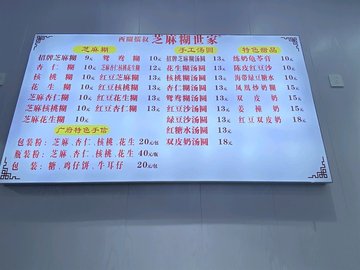 西关儒叔 芝麻糊世家
芝麻糊
招牌芝麻糊 9元 鸳鸯糊 10元
杏仁糊 10元 芝麻杏仁核桃糊 12元
核桃糊 10元 红豆芝麻糊 13元
花生糊 10元 红豆花生糊 13元
芝麻杏仁糊 10元 红豆核桃糊 13元
芝麻核桃糊 10元 红豆杏仁糊 13元
芝麻花生糊 10元
广府特色手信
包装粉：芝麻、杏仁、核桃、花生 20元/包
瓶装粉：芝麻、杏仁、核桃、花生 40元/瓶
包装：糖、鸡仔饼、牛耳仔 20元/包
手工汤圆
招牌芝麻糊汤圆 13元
花生糊汤圆 13元
核桃糊汤圆 13元
杏仁糊汤圆 13元
鸳鸯糊汤圆 13元
红豆沙汤圆 13元
绿豆沙汤圆 13元
红糖水汤圆 13元
双皮奶汤圆 18元
特色甜品
炼奶龟苓膏 10元
陈皮红豆沙 10元
海带绿豆糖水 10元
凤凰沙奶糊 15元
双皮奶 15元
姜撞奶 15元
红豆双皮奶 18元